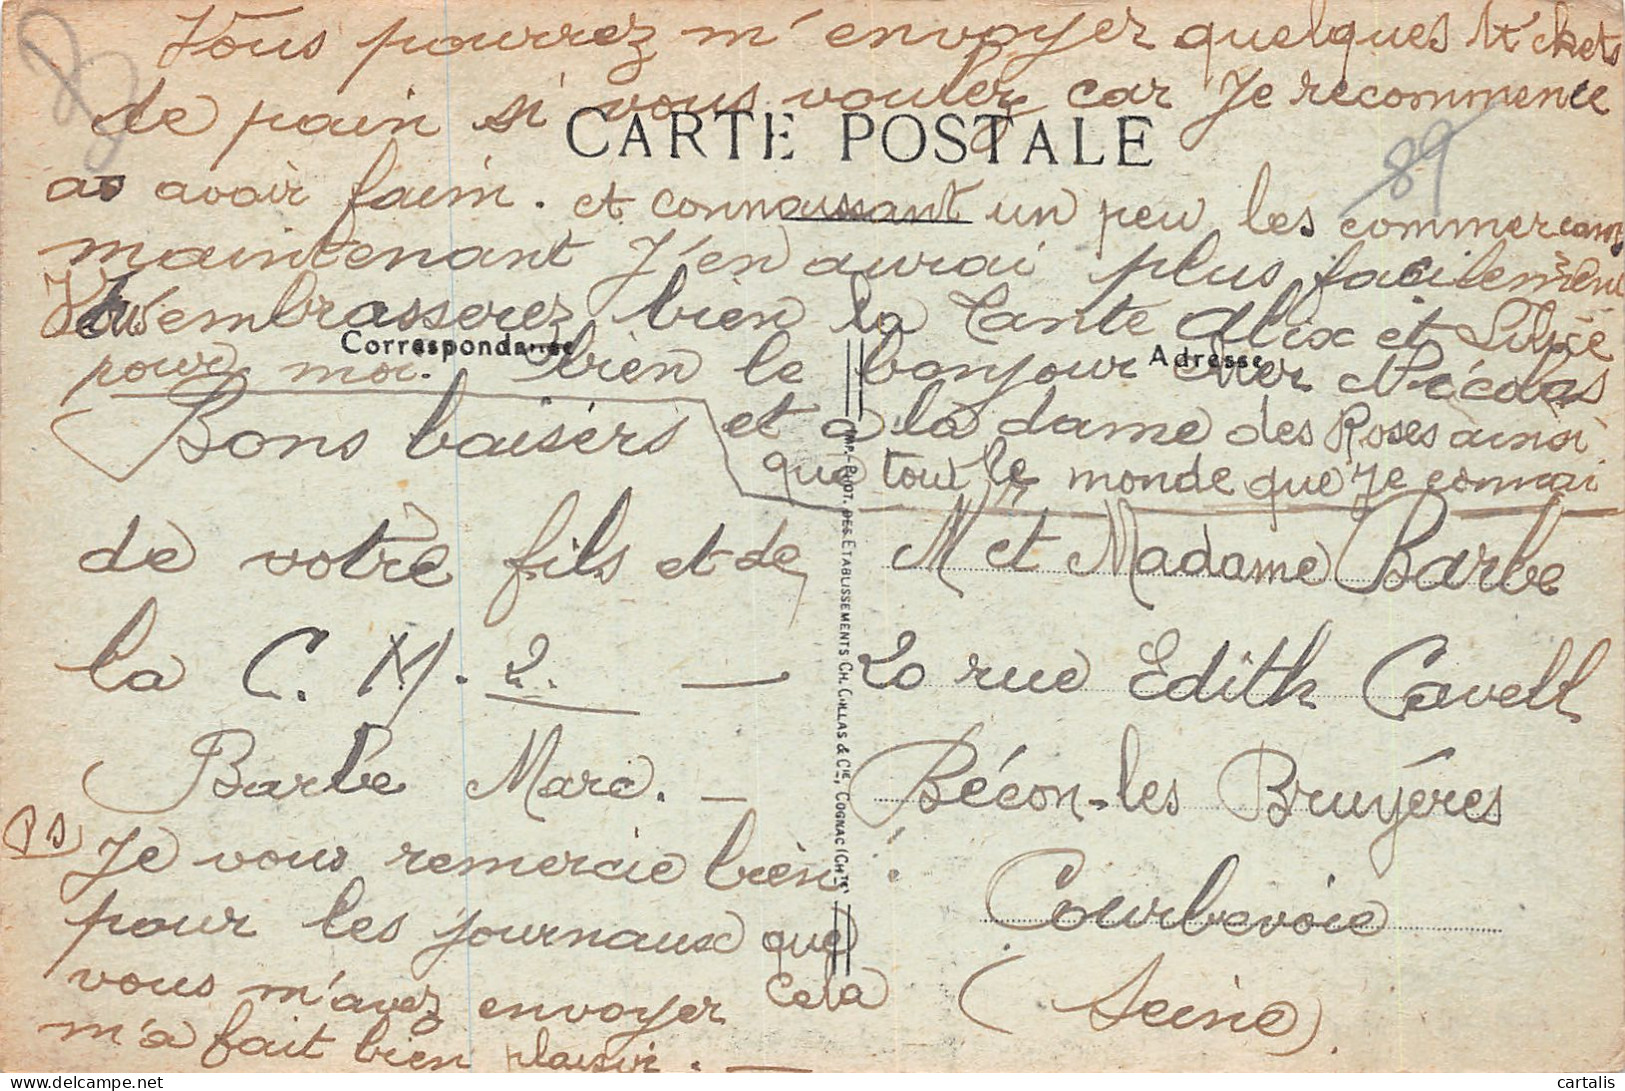 Vous pourrez m'envoyer quelques tickets
de pain si vous voulez car Je recommence
CARTE POSTALE
89
as avoir faim. et connaissant un peu les commercants
maintenant J'en aurai plus facilement
Vous embrasserez bien la Tante Alix et Sylvie
Correspondance
Adresse
pour moi. bien le bonjour Nicolas
Bons baisers et a la dame des Roses ainsi
que tout le monde que Je connai
de votre fils et de
la C. M. 2. —
Barbe Marc. —
PS Je vous remercie bien
pour les journaux que
vous m'avez envoyer cela
m'a fait bien plaisir. —
IMP. PHOT. DES ÉTABLISSEMENTS CH. COLLAS & CIE, COGNAC (CH.TE)
M et Madame Barbe
20 rue Edith Cavell
Bécon-les Bruyères
Courbevoie
(Seine)
cartalis